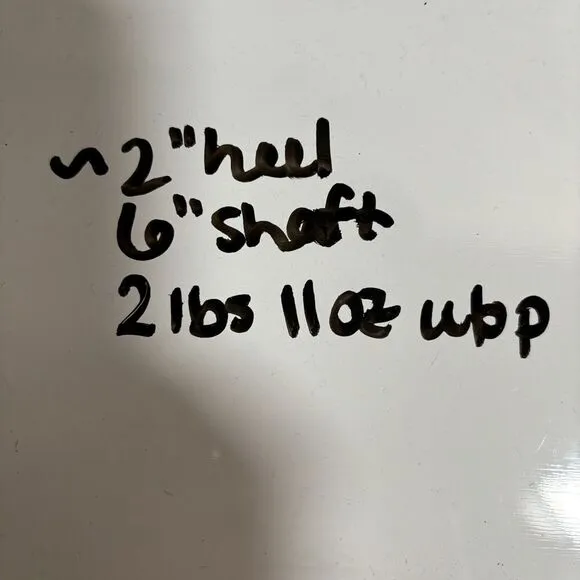 ~2" heel
6" shaft
2 lbs 11oz wbp